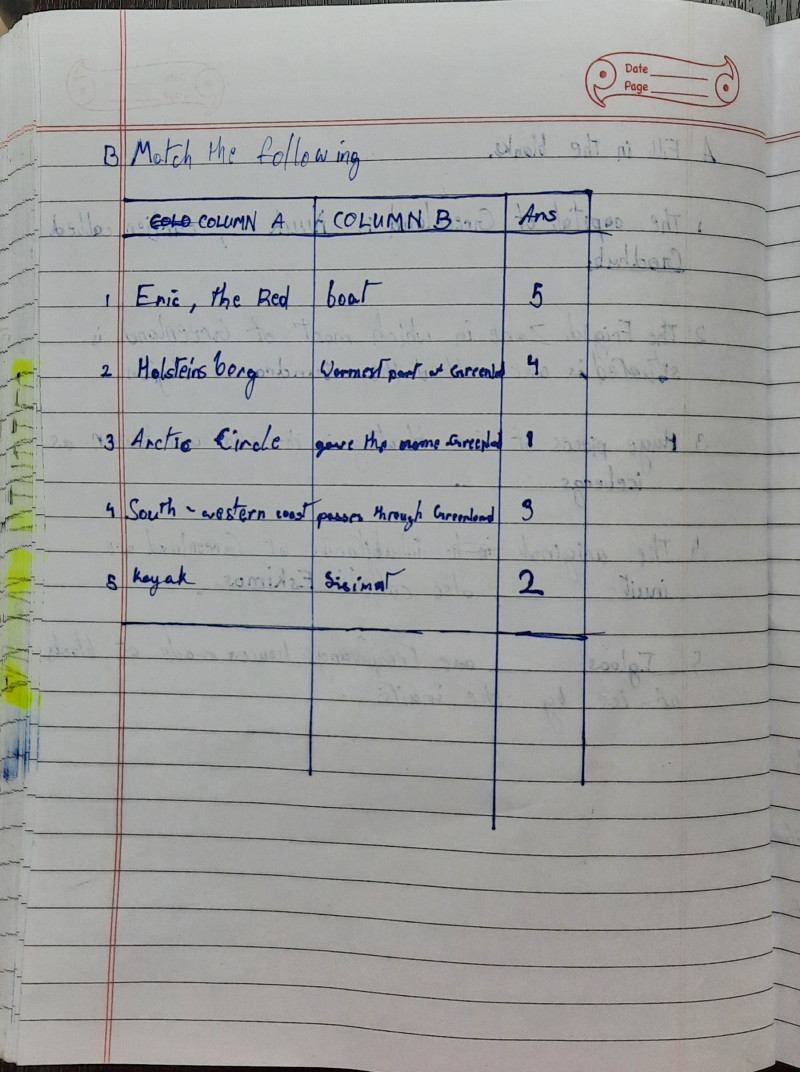 Date
Page
B Match the following
COLUMN A COLUMN B Ans
1 Eric, the Red boat 5
2 Holsteinsborg Warmest part of Greenld 4
3 Arctic Circle gave the name Greenlad 1
4 South-western coast passes through Greenland 3
5 kayak Sisimat 2